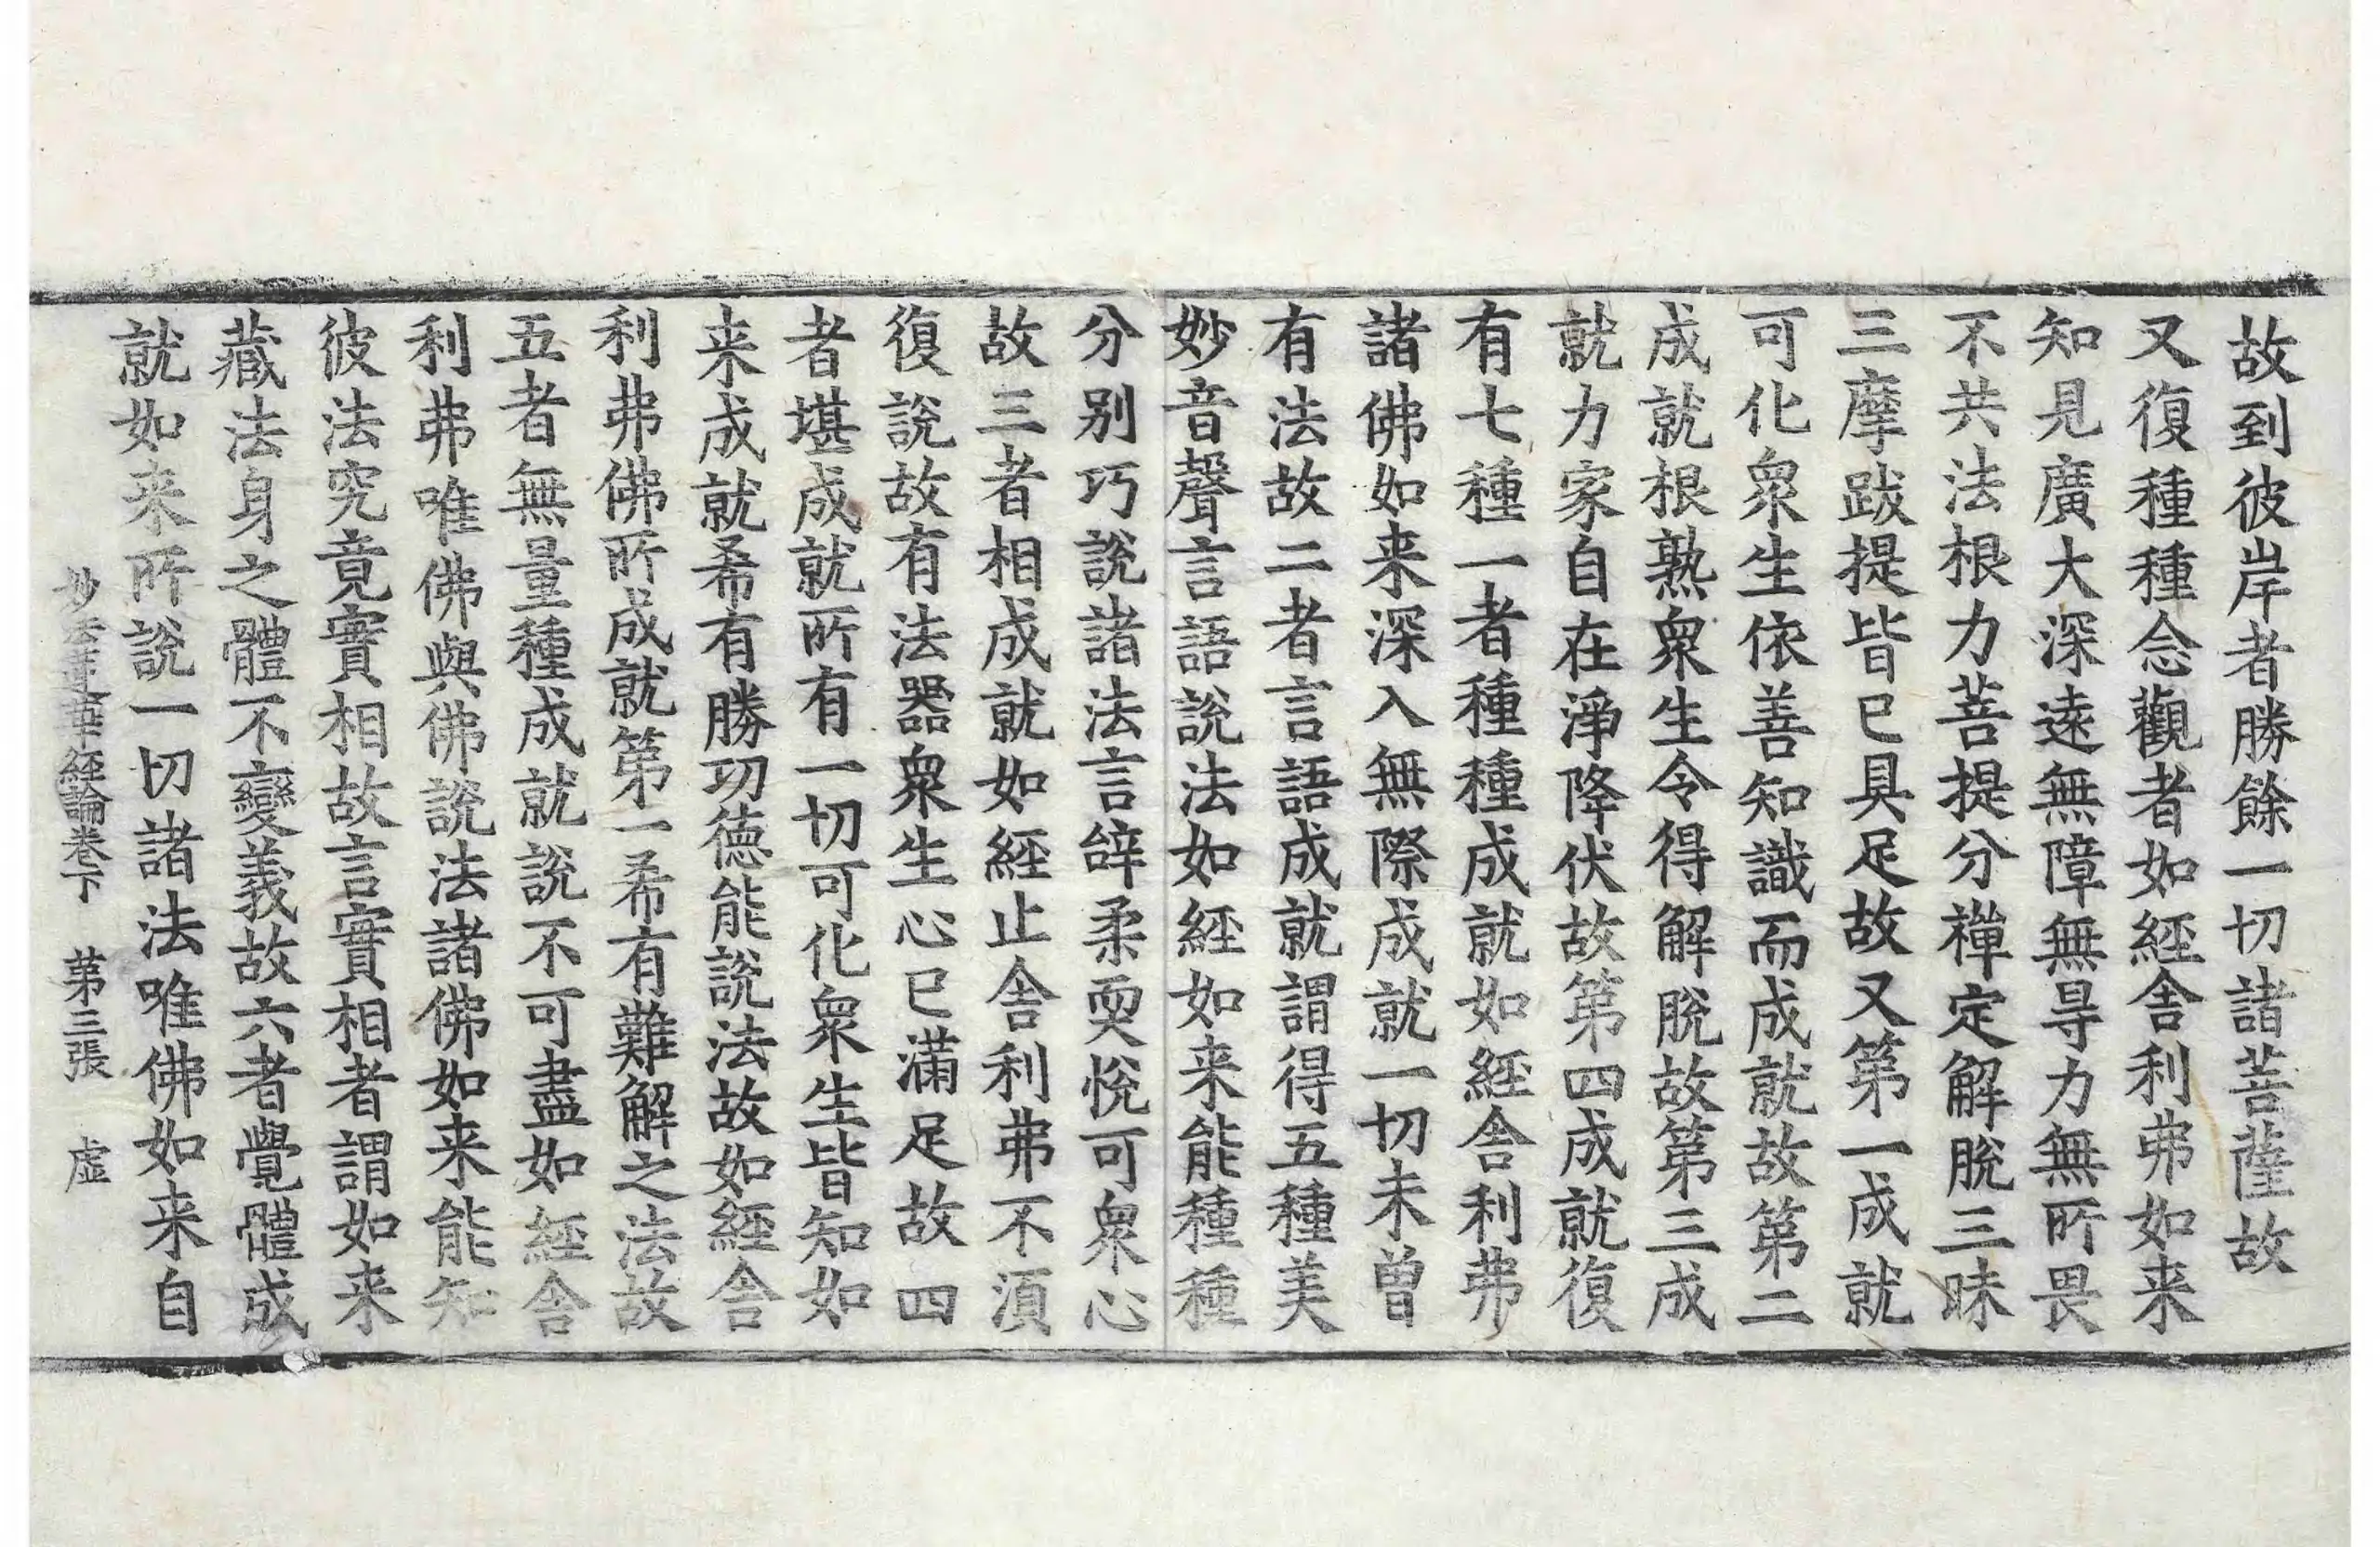 故到彼岸者勝餘一切諸菩薩故
又復種種念觀者如經舍利弗如来
知見廣大深遠無障無㝵力無所畏
不共法根力菩提分禪定解脫三昧
三摩跋提皆已具足故又第一成就
可化衆生依善知識而成就故第二
成就根熟衆生令得解脫故第三成
就力家自在淨降伏故第四成就復
有七種一者種種成就如經舍利弗
諸佛如来深入無際成就一切未曽
有法故二者言語成就謂得五種美
妙音聲言語說法如經如来能種種
分別巧說諸法言辝柔耎悅可衆心
故三者相成就如經止舍利弗不湏
復說故有法器衆生心已滿足故四
者堪成就所有一切可化衆生皆知如
来成就希有勝功德能說法故如經舍
利弗佛所成就第一希有難解之法故
五者無量種成就說不可盡如經舍
利弗唯佛與佛說法諸佛如来能知
彼法究竟實相故言實相者謂如来
藏法身之體不變義故六者覺體成
就如来所說一切諸法唯佛如来自
妙法蓮華經論卷下 第三張 虛